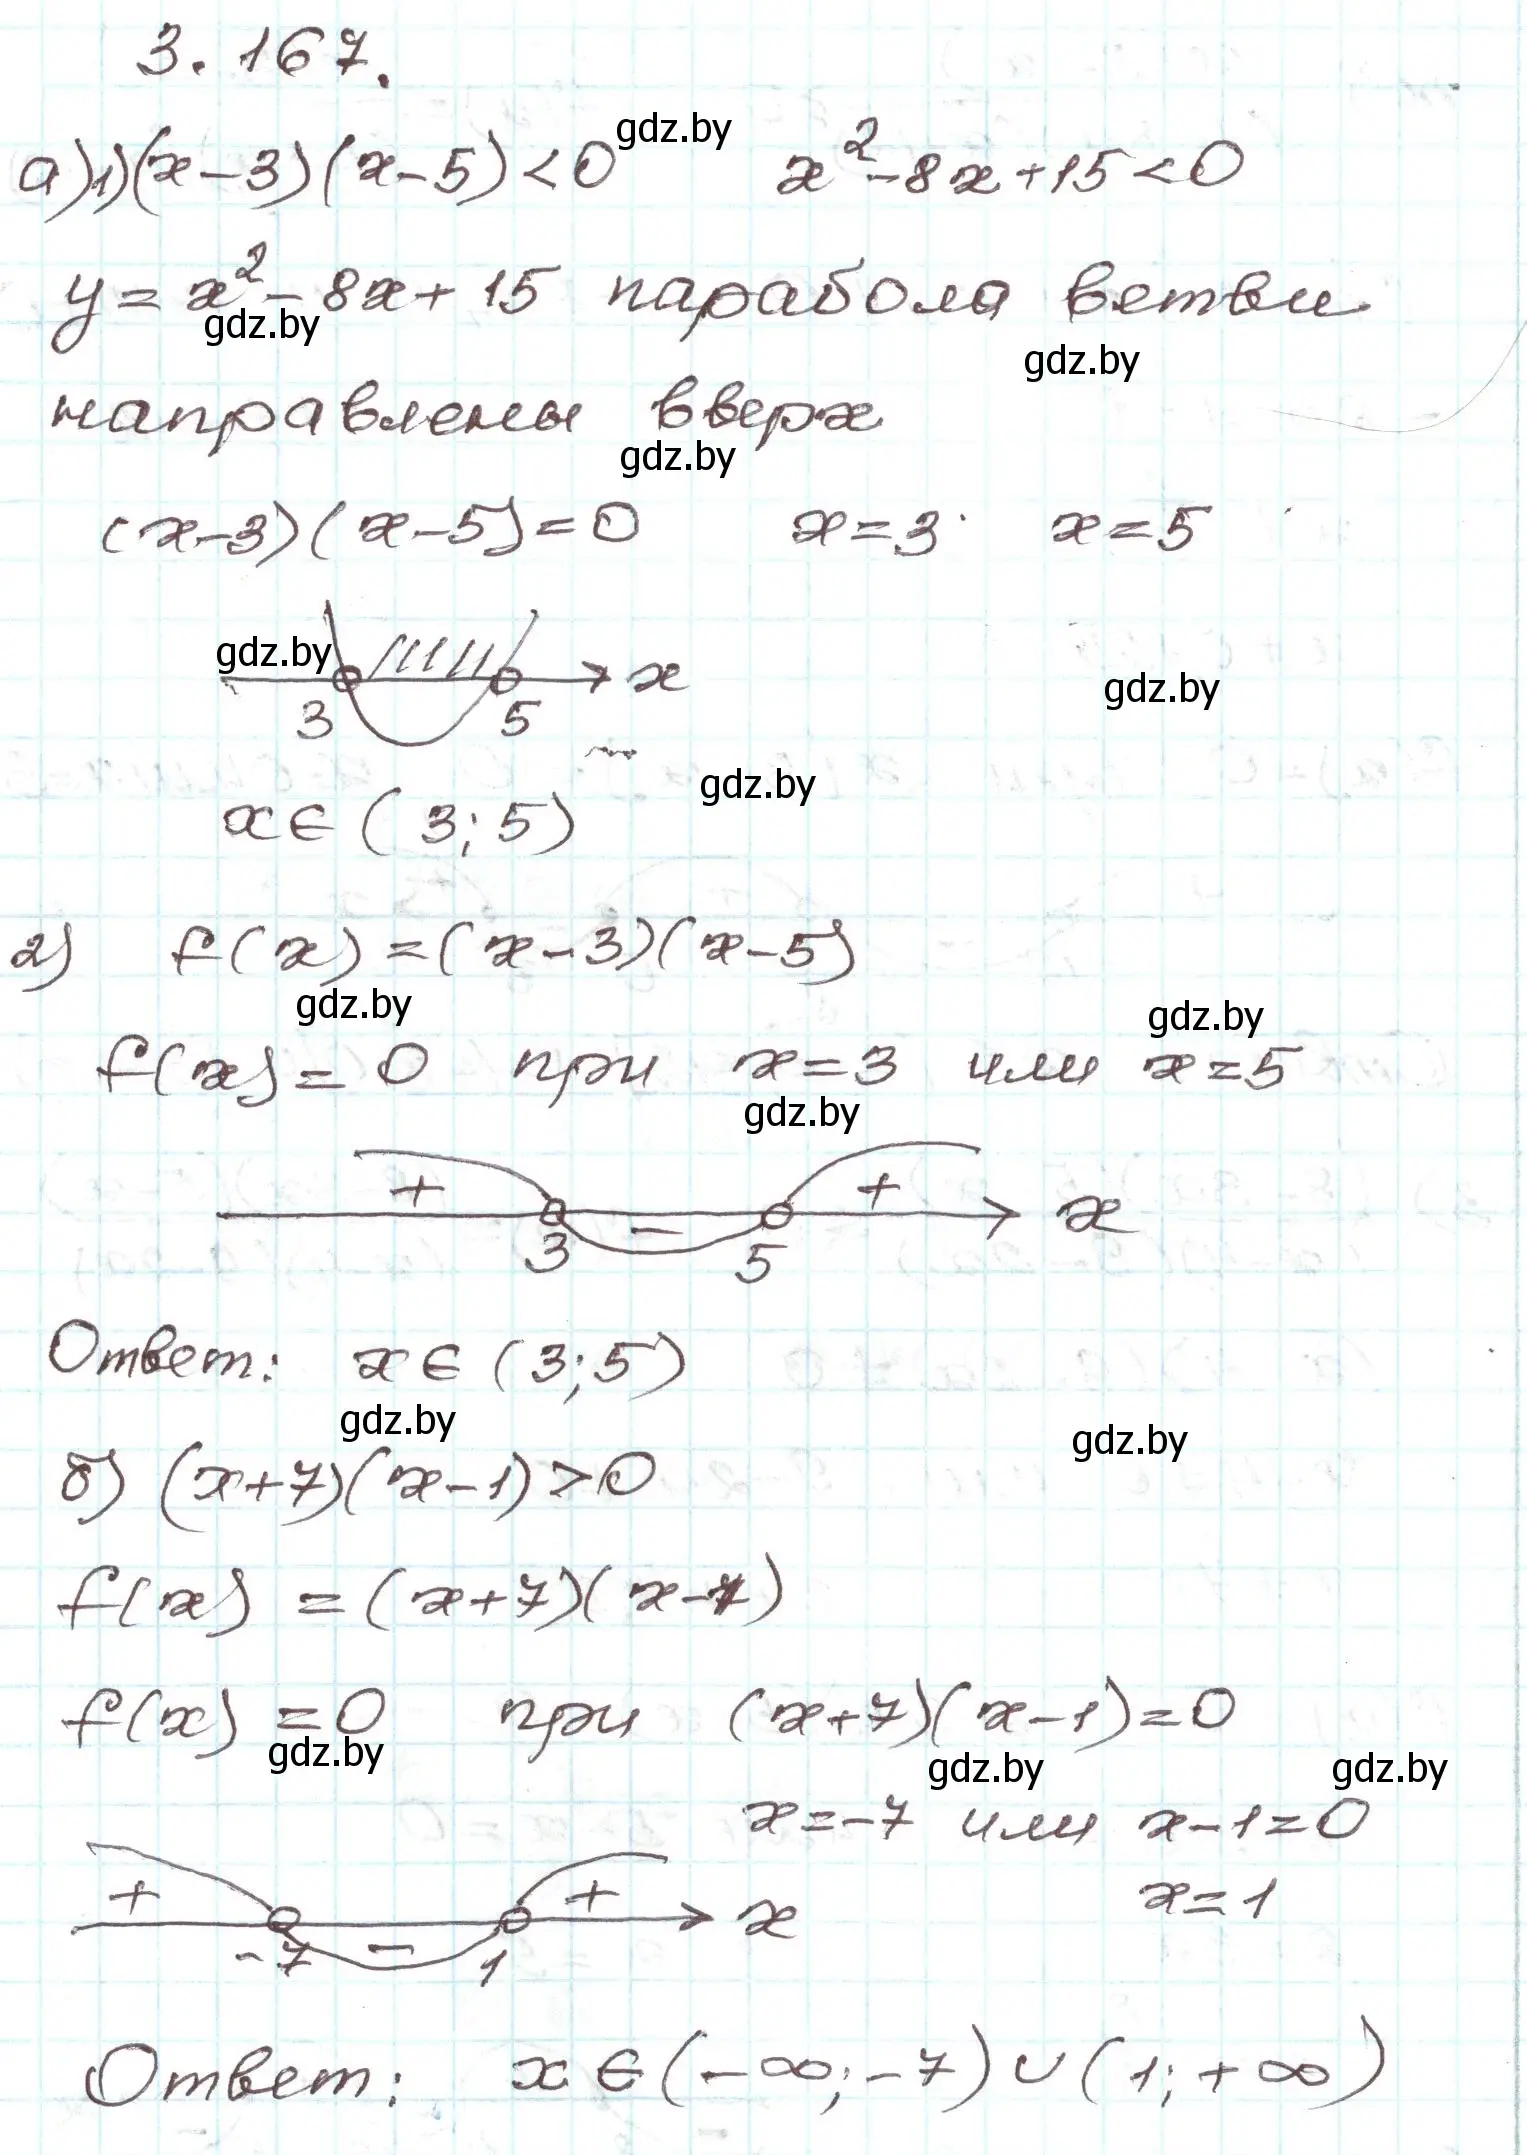 3.167.
а)1)(x-3)(x-5)<0 x²-8x+15<0
gdz.by
y=x²-8x+15 парабола ветви
gdz.by
gdz.by
направлены вверх
gdz.by
(x-3)(x-5)=0 x=3 x=5
gdz.by x
gdz.by
3 5
gdz.by
x∈(3;5)
2) f(x)=(x-3)(x-5)
gdz.by gdz.by
f(x)=0 при x=3 или x=5
gdz.by
+ - + x
3 5
Ответ: x∈(3;5)
gdz.by gdz.by
б) (x+7)(x-1)>0
f(x)=(x+7)(x-1)
f(x)=0 при (x+7)(x-1)=0
gdz.by gdz.by gdz.by
x=-7 или x-1=0
+ - + x x=1
-7 1
Ответ: x∈(-∞;-7)∪(1;+∞)